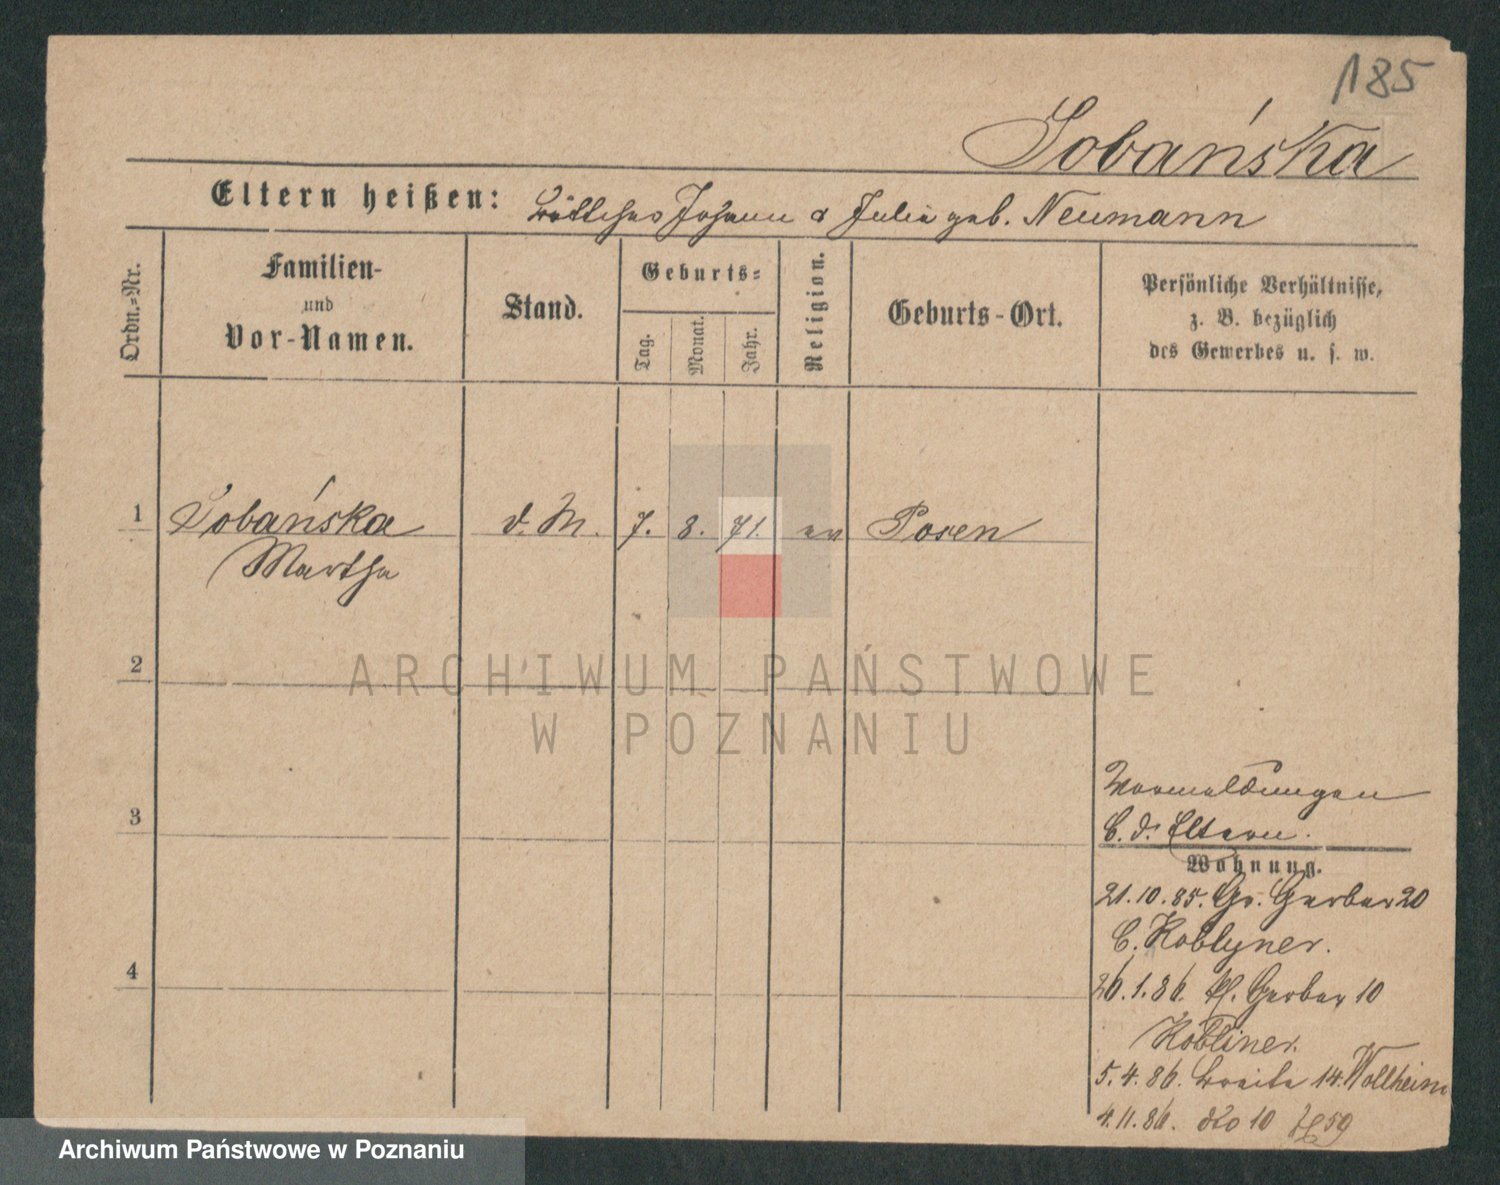 185
Sobańska
Eltern heißen: Böttcher Johann & Julie geb. Neumann
Ordn.-Nr.
Familien-
und
Vor-Namen.
Stand.
Geburts-
Tag.
Monat.
Jahr.
Religion.
Geburts-Ort.
Persönliche Verhältnisse,
z. B. bezüglich
des Gewerbes u. s. w.
1 Sobańska d. M. 7. 8. 71. ev Posen
Martha
2
ARCHIWUM PAŃSTWOWE
W POZNANIU
3
4
Vormeldungen
b. d. Eltern.
Wohnung.
21.10.85. Gr. Gerber 20
b. Koblyner.
26.1.86. Kl. Gerber 10
Kobliner.
5.4.86. Breite 14. Wollheim
4.11.86. dto 10
Archiwum Państwowe w Poznaniu